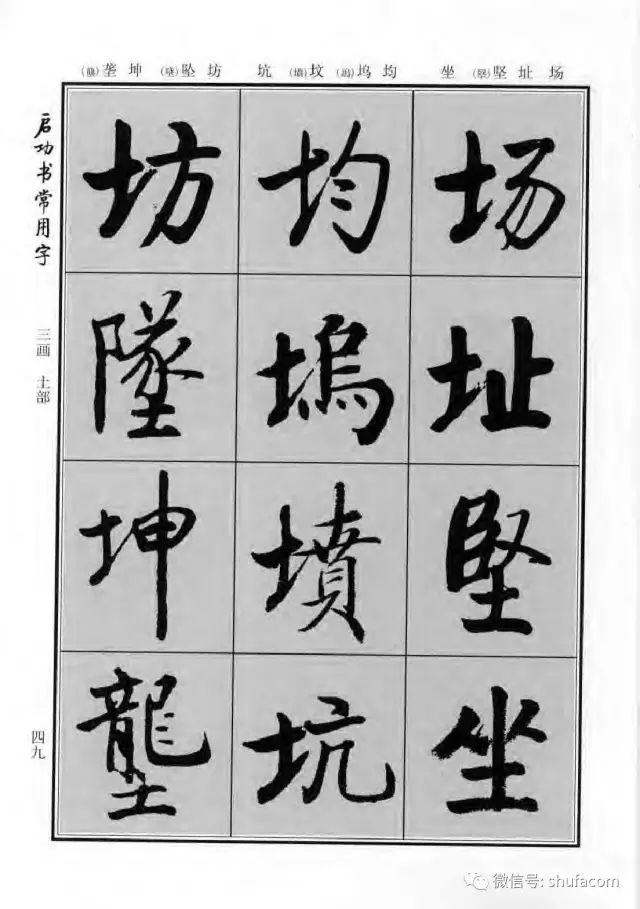 场 址 坚(堅) 坐
均 坞(塢) 坟(墳) 坑
坊 坠(墜) 坤 垄(壟)
场址堅坐
均塢墳坑
坊墜坤壟
启功书常用字
三画 土部
四九
微信号: shufacom